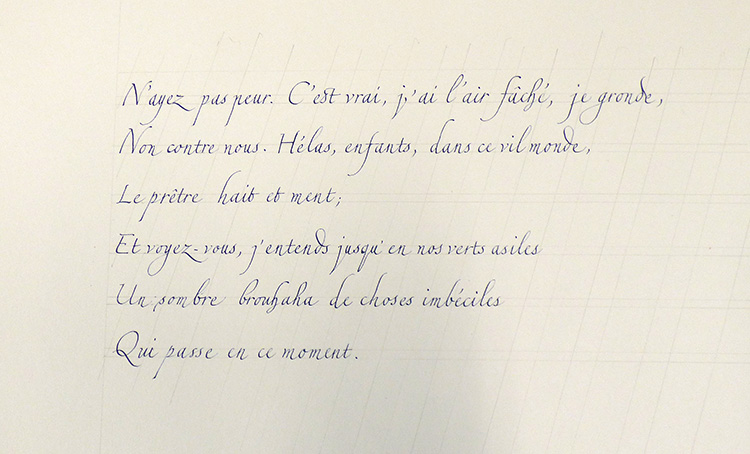 N'ayez pas peur. C'est vrai, j'ai l'air fâché, je gronde,
Non contre nous. Hélas, enfants, dans ce vil monde,
Le prêtre hait et ment;
Et voyez-vous, j'entends jusqu'en nos verts asiles
Un sombre brouhaha de choses imbéciles
Qui passe en ce moment.